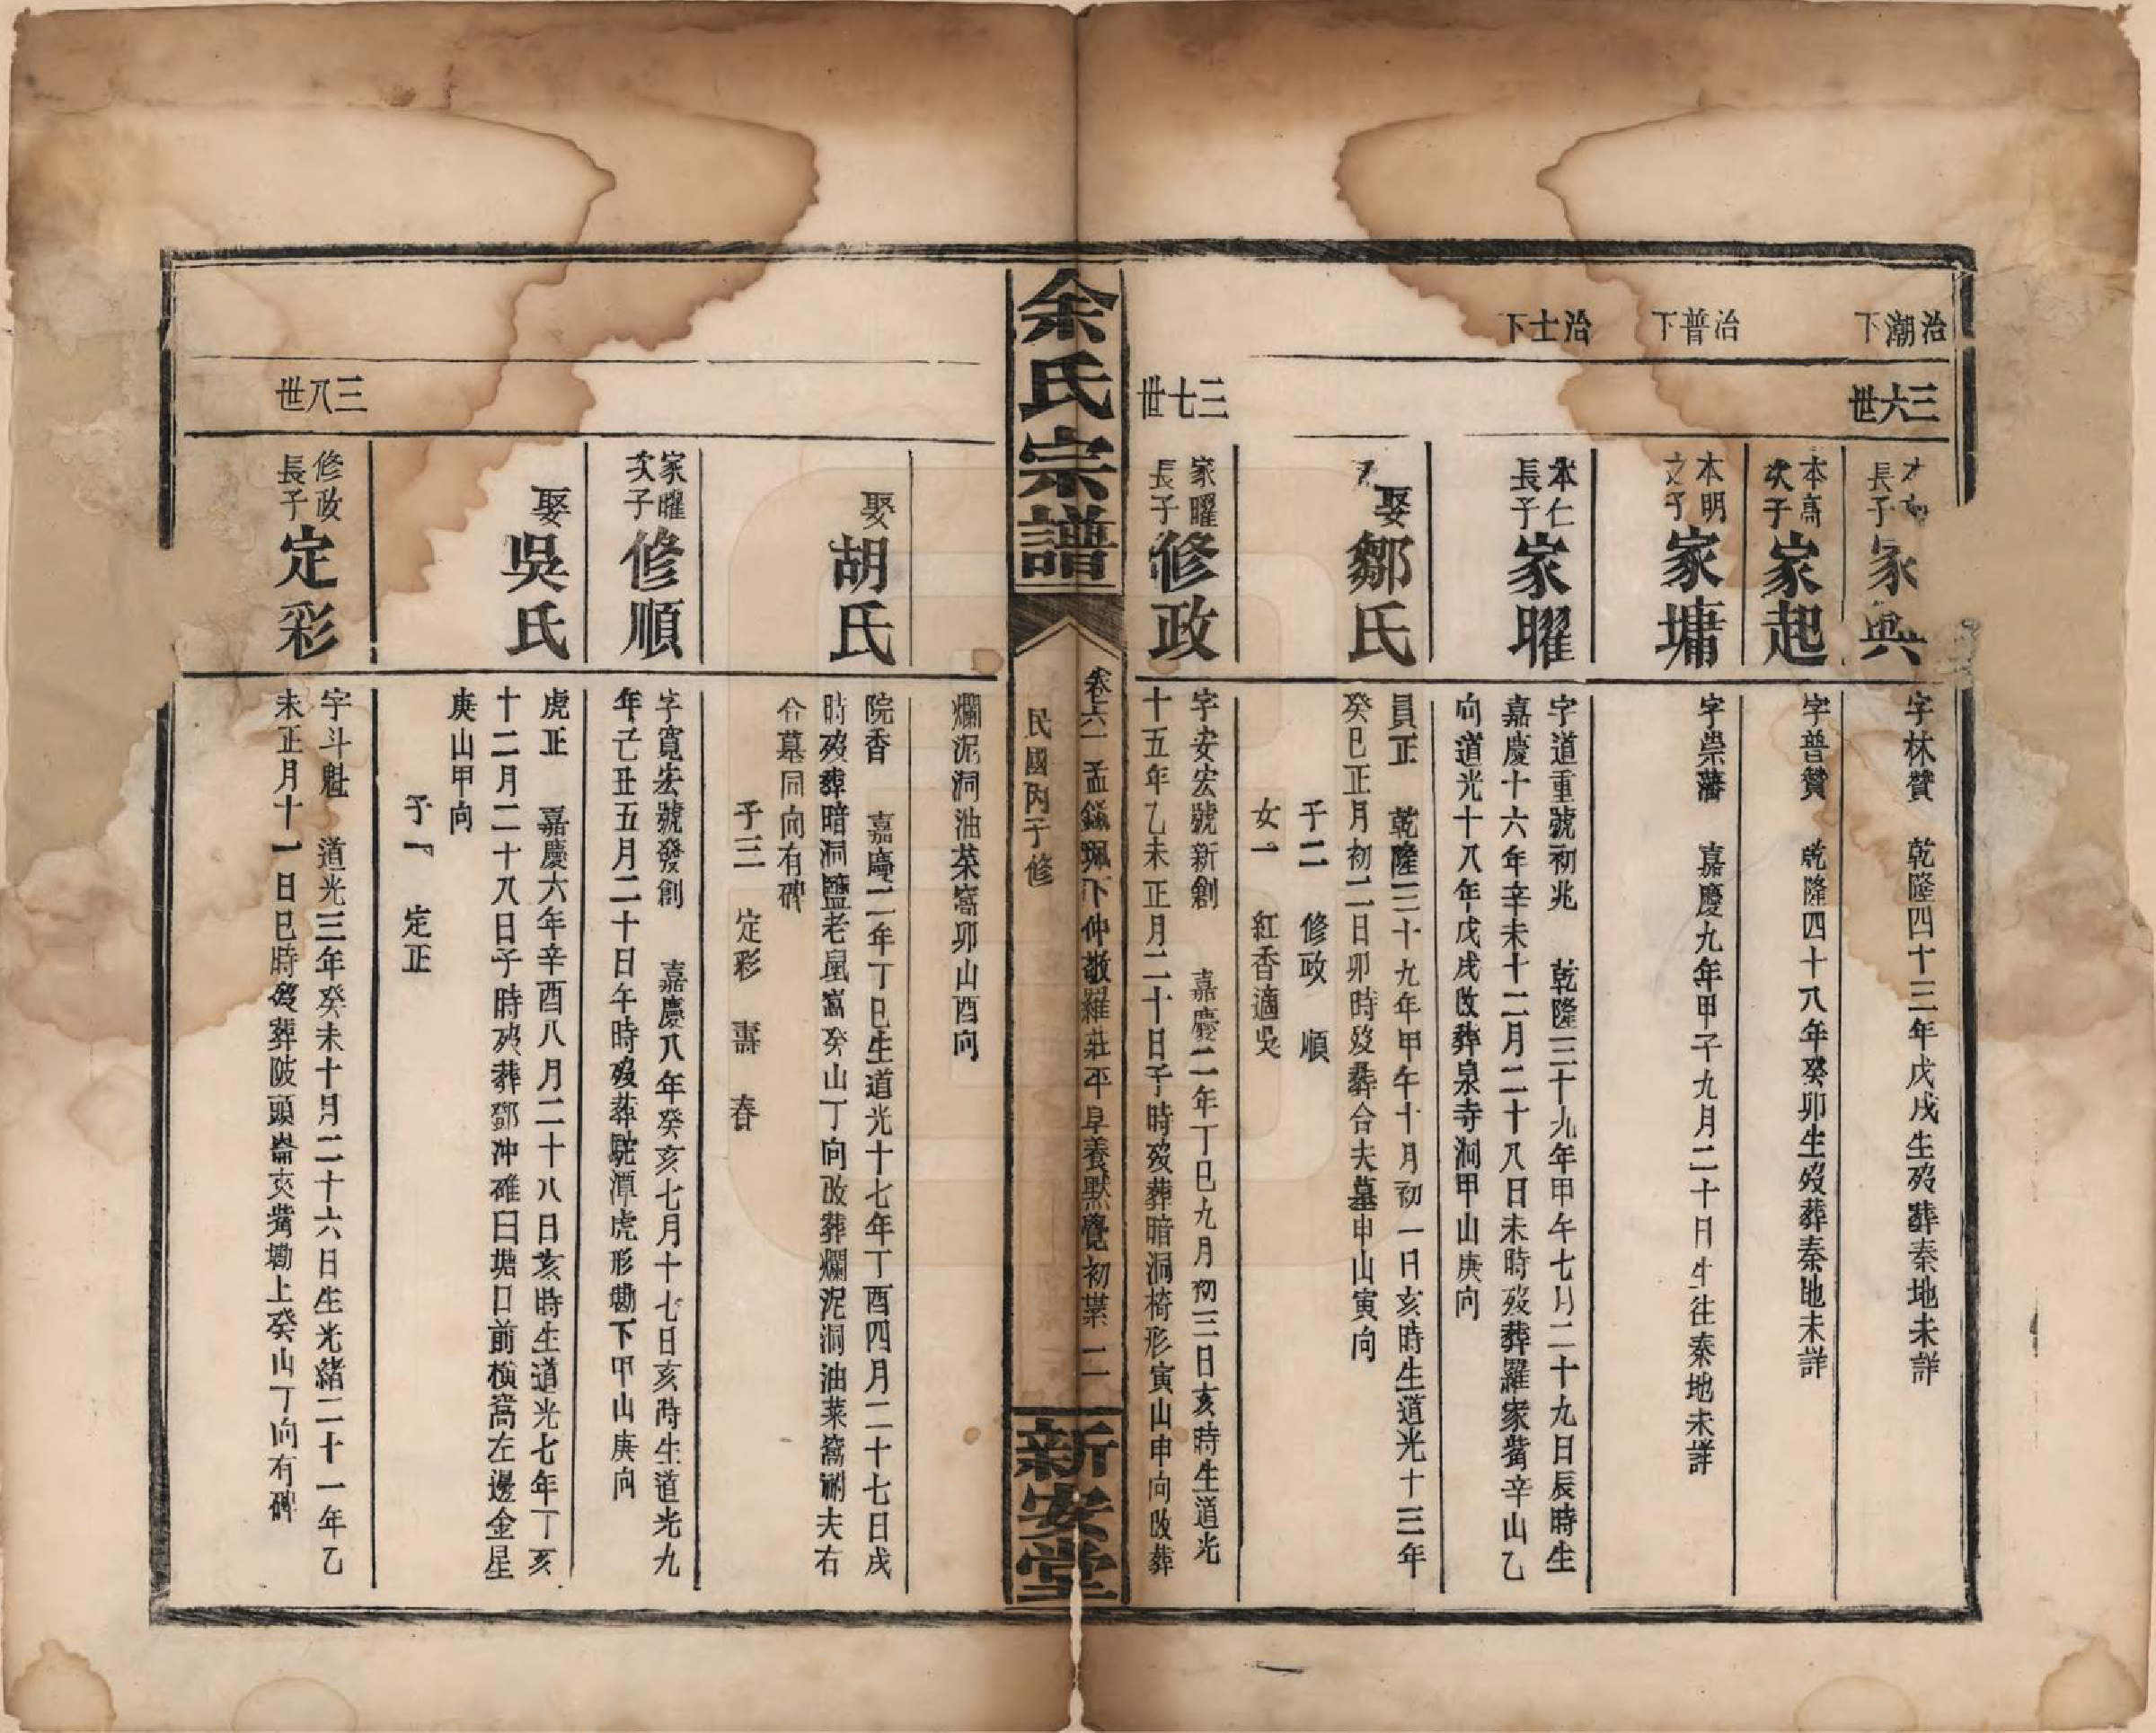 治潮下
三六世
長子
家興
字林贊 乾隆四十三年戊戌生歿葬秦地未詳
本高
次子
家起
字普贊 乾隆四十八年癸卯生歿葬秦地未詳
治普下
本明
子
家墉
字崇藩 嘉慶九年甲子九月二十日生往秦地未詳
治士下
本仁
長子
家曜
字道重號初兆 乾隆三十九年甲午七月二十九日辰時生
嘉慶十六年辛未十二月二十八日未時歿葬羅家嘴辛山乙
向道光十八年戊戌改葬泉寺洞甲山庚向
娶
鄒氏
員正 乾隆三十九年甲午十月初一日亥時生道光十三年
癸巳正月初二日卯時歿葬合夫墓申山寅向
子二 修政 順
女一 紅香適吳
三七世
家曜
長子
修政
字安宏號新創 嘉慶二年丁巳九月初三日亥時生道光
十五年乙未正月二十日子時歿葬暗洞椅形寅山申向改葬
余氏宗譜
卷六一 孟鎰珮下仲敬羅莊平阜養默覺初業 二
民國丙子修
新安堂
爛泥洞油菜窩卯山酉向
娶
胡氏
院香 嘉慶二年丁巳生道光十七年丁酉四月二十七日戌
時歿葬暗洞鹽老鼠窩癸山丁向改葬爛泥洞油菜窩祔夫右
合墓同向有碑
子三 定彩 壽 春
家曜
次子
修順
字寬宏號發創 嘉慶八年癸亥七月十七日亥時生道光九
年己丑五月二十日午時歿葬駝潭虎形墈下甲山庚向
娶
吳氏
虎正 嘉慶六年辛酉八月二十八日亥時生道光七年丁亥
十二月二十八日子時歿葬鄧冲碓臼塘口前橫窩左邊金星
庚山甲向
子一 定正
三八世
修政
長子
定彩
字斗魁 道光三年癸未十月二十六日生光緒二十一年乙
未正月十一日巳時歿葬陂頭崙夾嘴墈上癸山丁向有碑